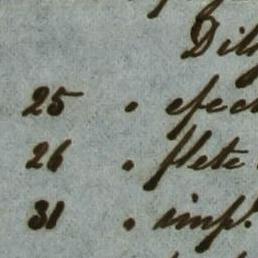 Dil
25 . efec
26 . flete
31 . imp.